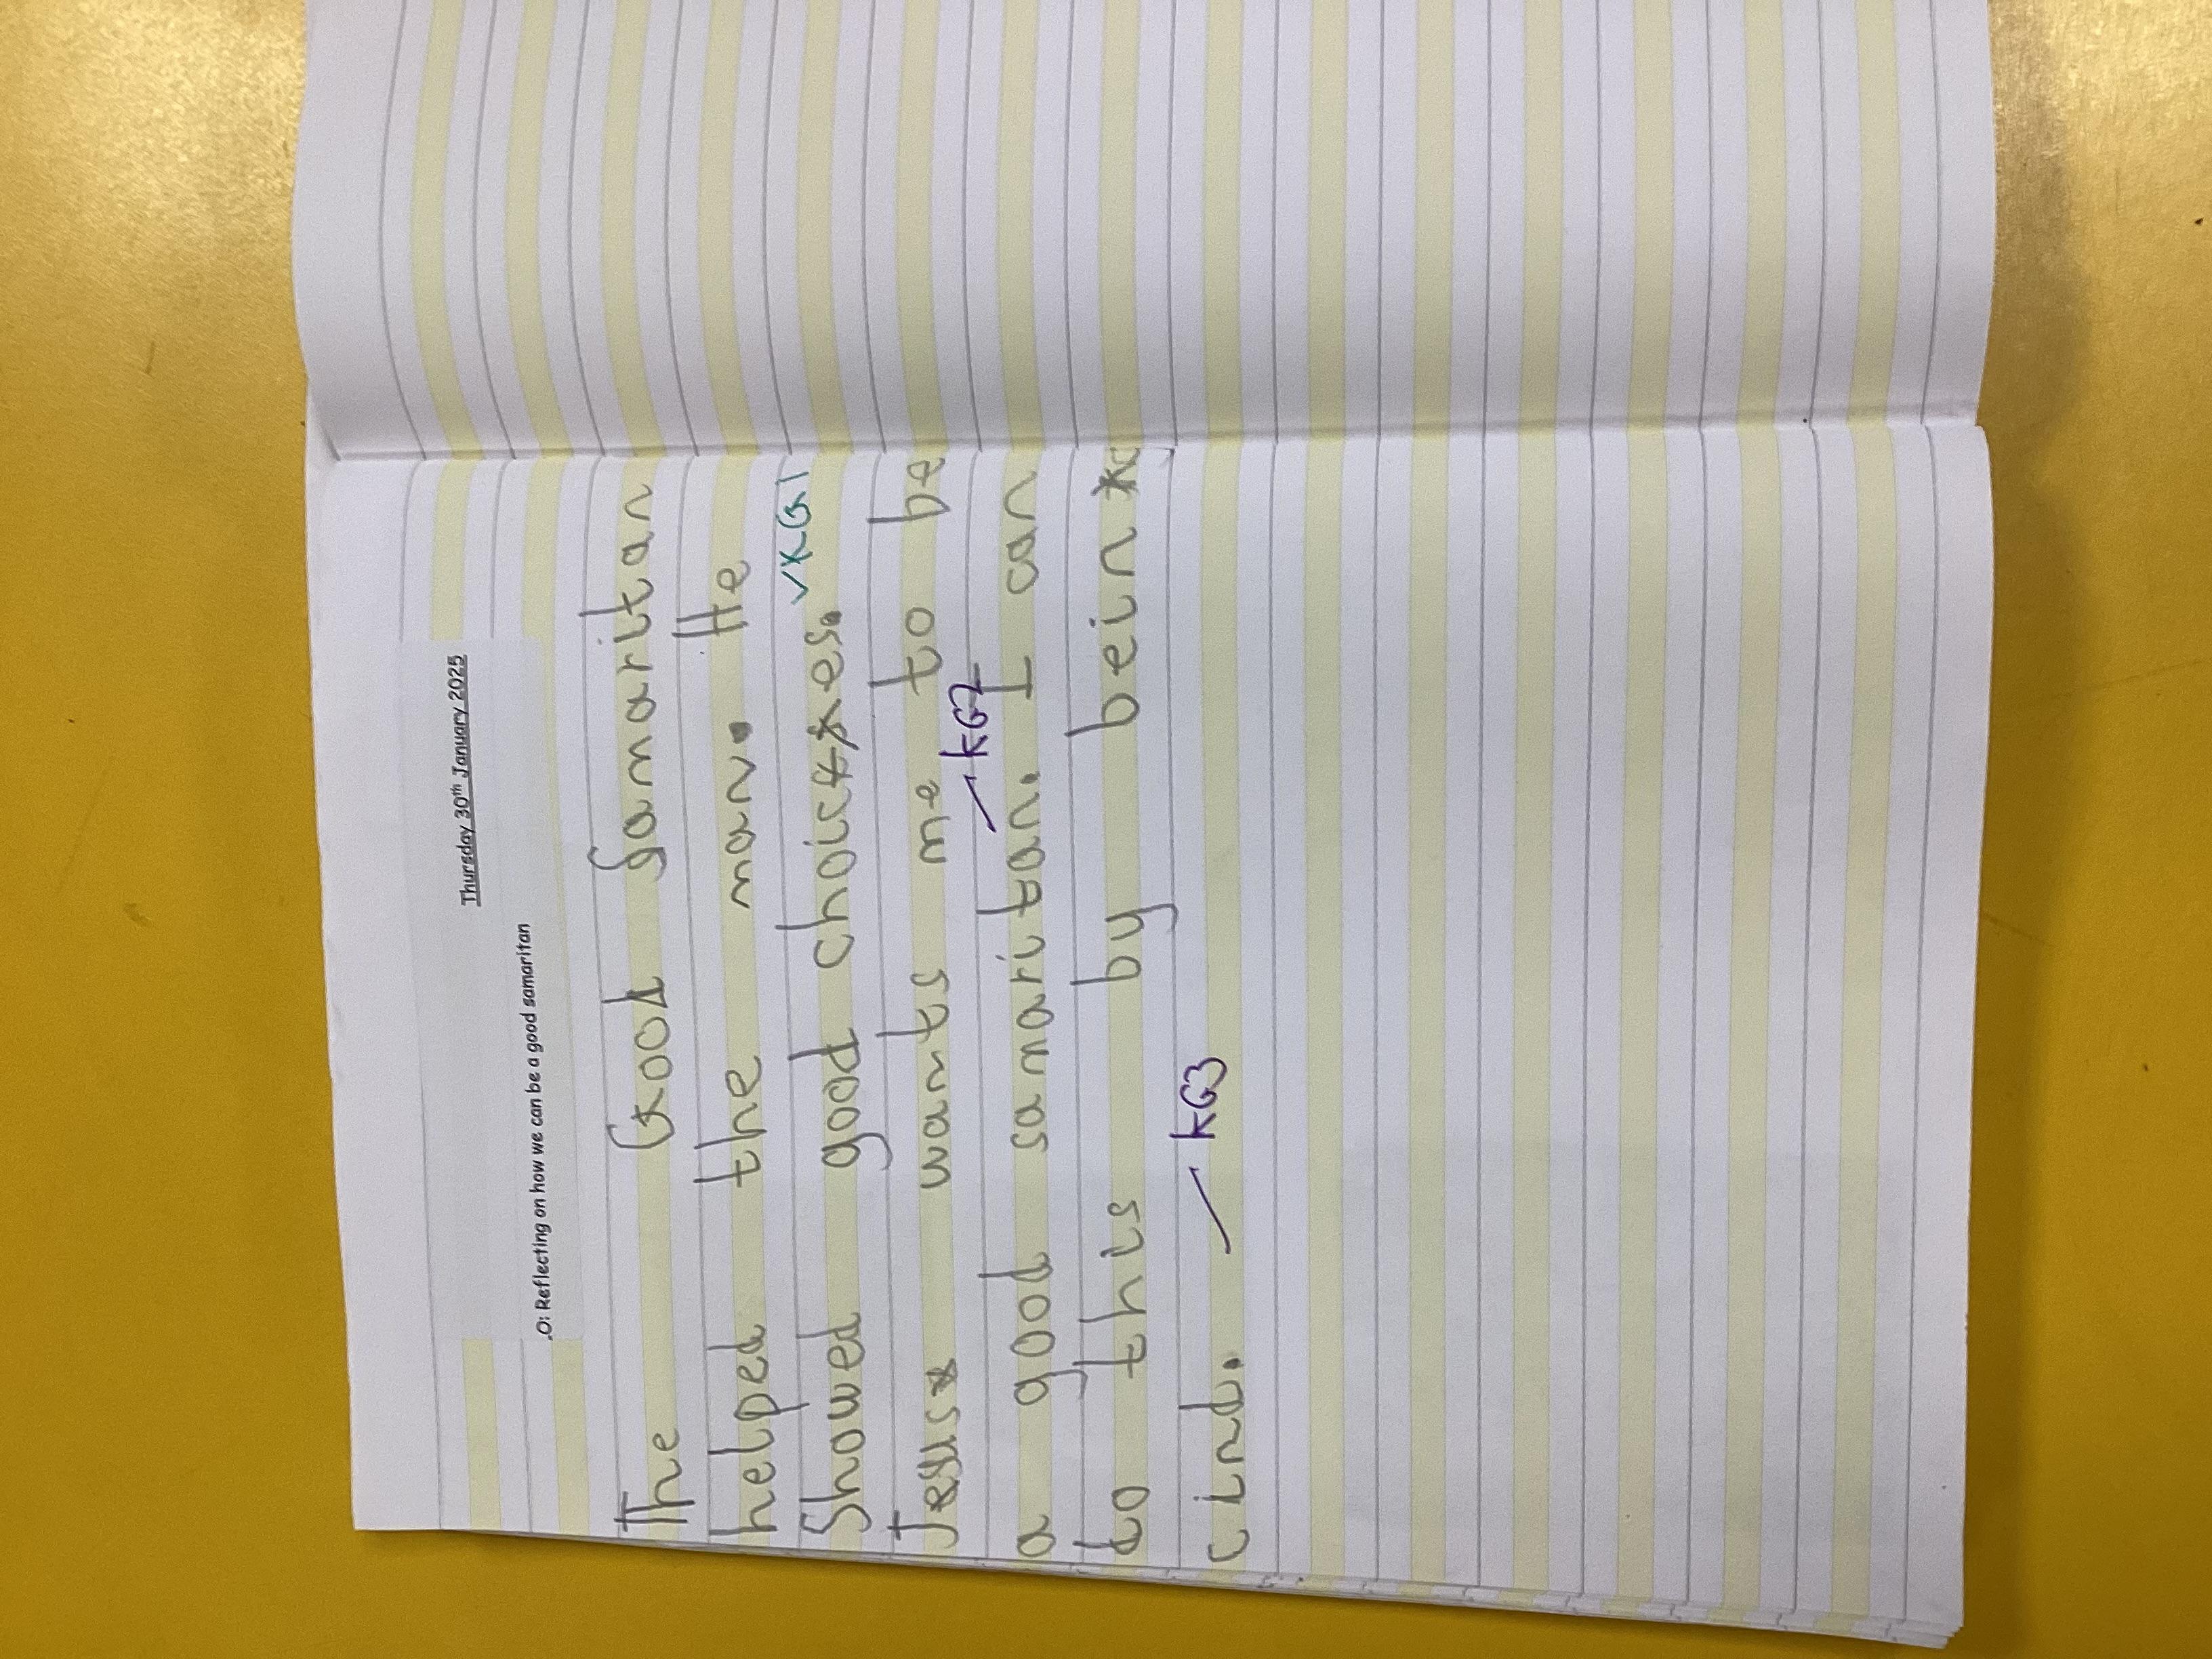 Thursday 30th January 2025
.O: Reflecting on how we can be a good samaritan
The Good Samaritan
helped the man. He
✓KG1
Showed good choices.
Jesus wants me to be
✓ KG2
a good samaritan. I can
to this by bein
✓ KG3
cind.